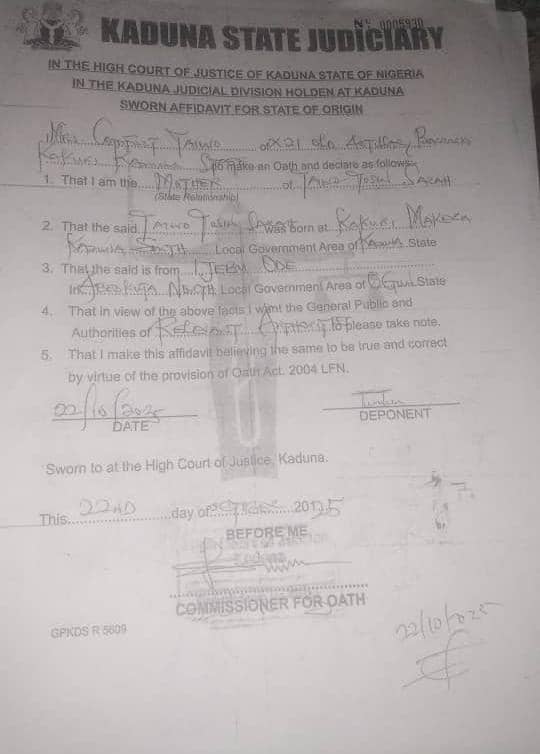 KADUNA STATE JUDICIARY
IN THE HIGH COURT OF JUSTICE OF KADUNA STATE OF NIGERIA
IN THE KADUNA JUDICIAL DIVISION HOLDEN AT KADUNA
SWORN AFFIDAVIT FOR STATE OF ORIGIN
TAIWO of
Kakuri do make an Oath and declare as follows:
1. That I am the MOTHER of TAIWO SARAH
(State Relationship)
2. That the said TAIWO SARAH was born at KAKURI, MAKERA
KADUNA SOUTH Local Government Area of KADUNA State
3. That the said is from IJEBU ODE
in ABEOKUTA NORTH Local Government Area of OGUN State
4. That in view of the above facts I want the General Public and
Authorities of RELEVANT to please take note.
5. That I make this affidavit believing the same to be true and correct
by virtue of the provision of Oath Act. 2004 LFN.
22/10/2025
DATE
DEPONENT
Sworn to at the High Court of Justice, Kaduna.
This 22ND day of 2025
BEFORE ME
COMMISSIONER FOR OATH
GPKDS R 5609
22/10/2025